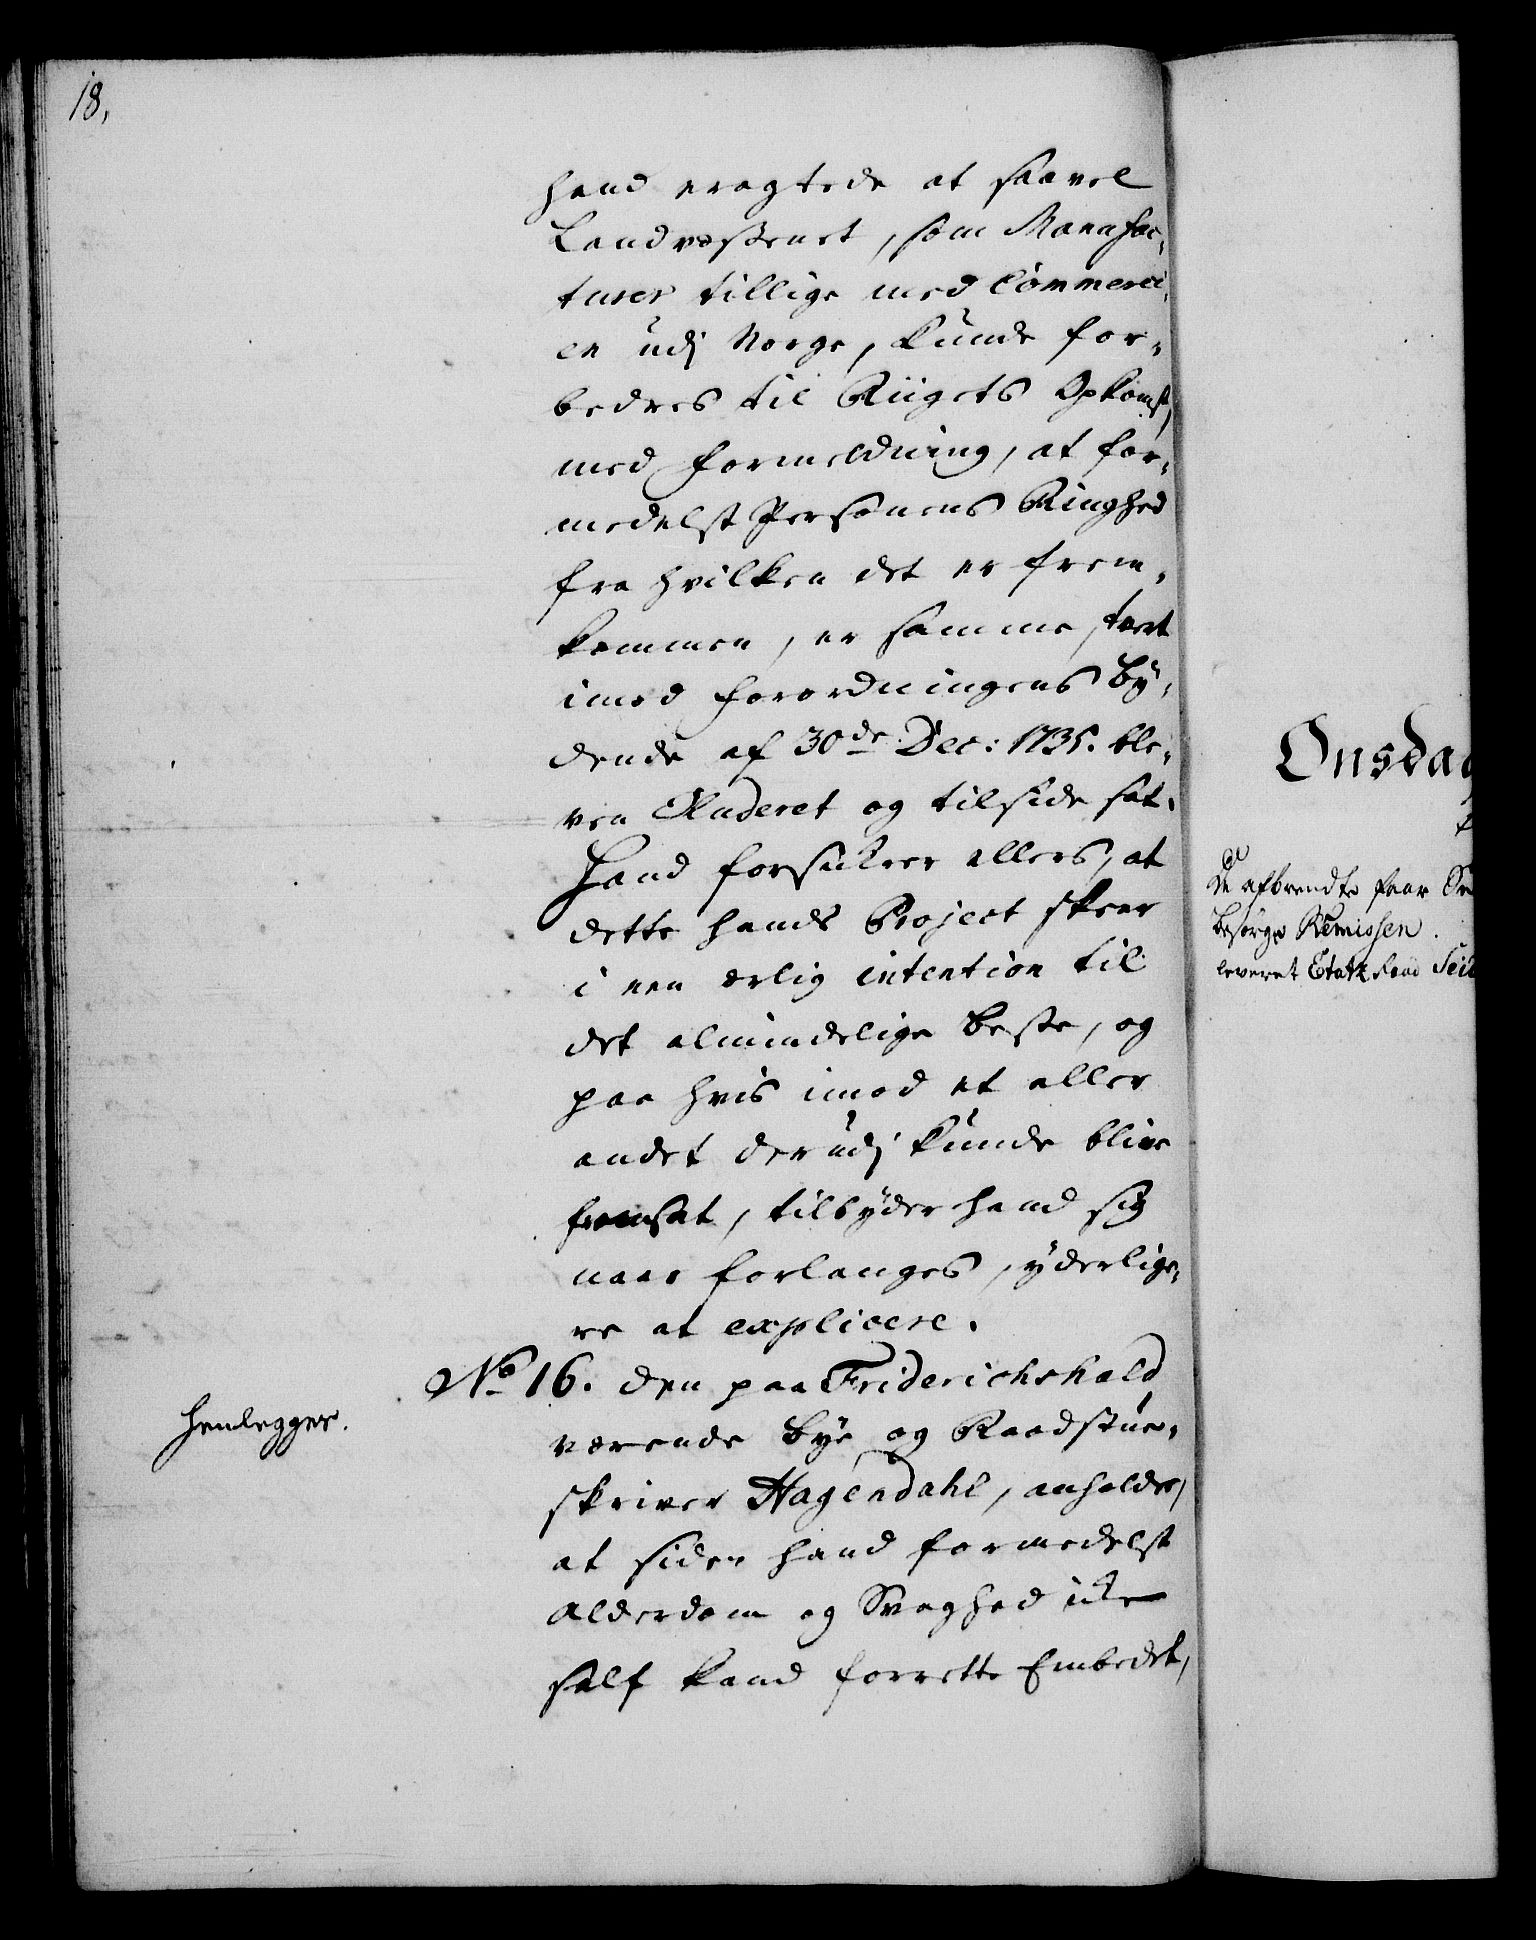 18,
hand eragtede at saavel
Landvæsenet, som Manufac,
turer tillige med Commerci,
en udj Norge, kunde for,
bedres til Riigets Opkomst,
med formeldning, at for,
medelst Personens Ringhed
fra hvilken det er frem,
kommen, er samme, tvert
imod forordningens by,
dende af 30de Dec: 1735. ble,
ven Eluderet og tilside sat.
Hand forsikrer ellers, at
dette hands Project skeer
i een ærlig intention til
det almindelige beste, og
paa hvis imod et eller
andet derudj kunde blive
fremsat, tilbyder hand sig
naar forlanges, yderlige,
re at explicere.
No 16. den paa Friderichshald
værende bye og Raadstue,
skriver Hagendahl, anholder,
at siden hand formedelst
Alderdom og Svaghed ikke
self kand forrette Embedet,
henlegges.
Onsdag
De afbrendte faar
besørge Remissen.
leveret Etatz Raad